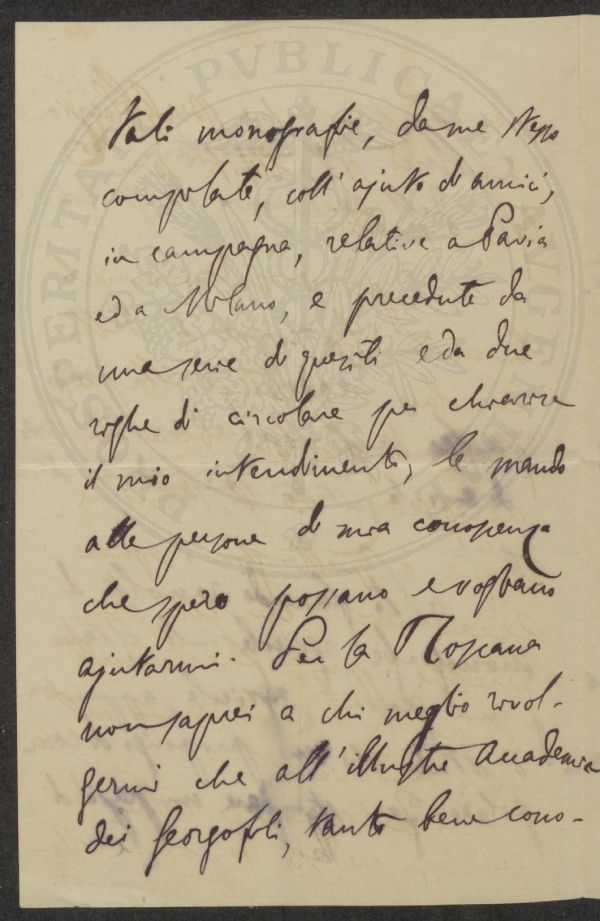 Tali monografie, da me stesso
compilate, coll' ajuto di amici,
in campagna, relative a Pavia
ed a Milano, e precedute da
una serie di quesiti e da due
righe di circolare per chiarire
il mio intendimento, le mando
alle persone di mia conoscenza
che spero possano e vogliano
ajutarmi. Per la Toscana
non saprei a chi meglio rivol-
germi che all' illustre Accademia
dei Georgofili, tanto bene cono-
PROSPERITATI PVBLICAE